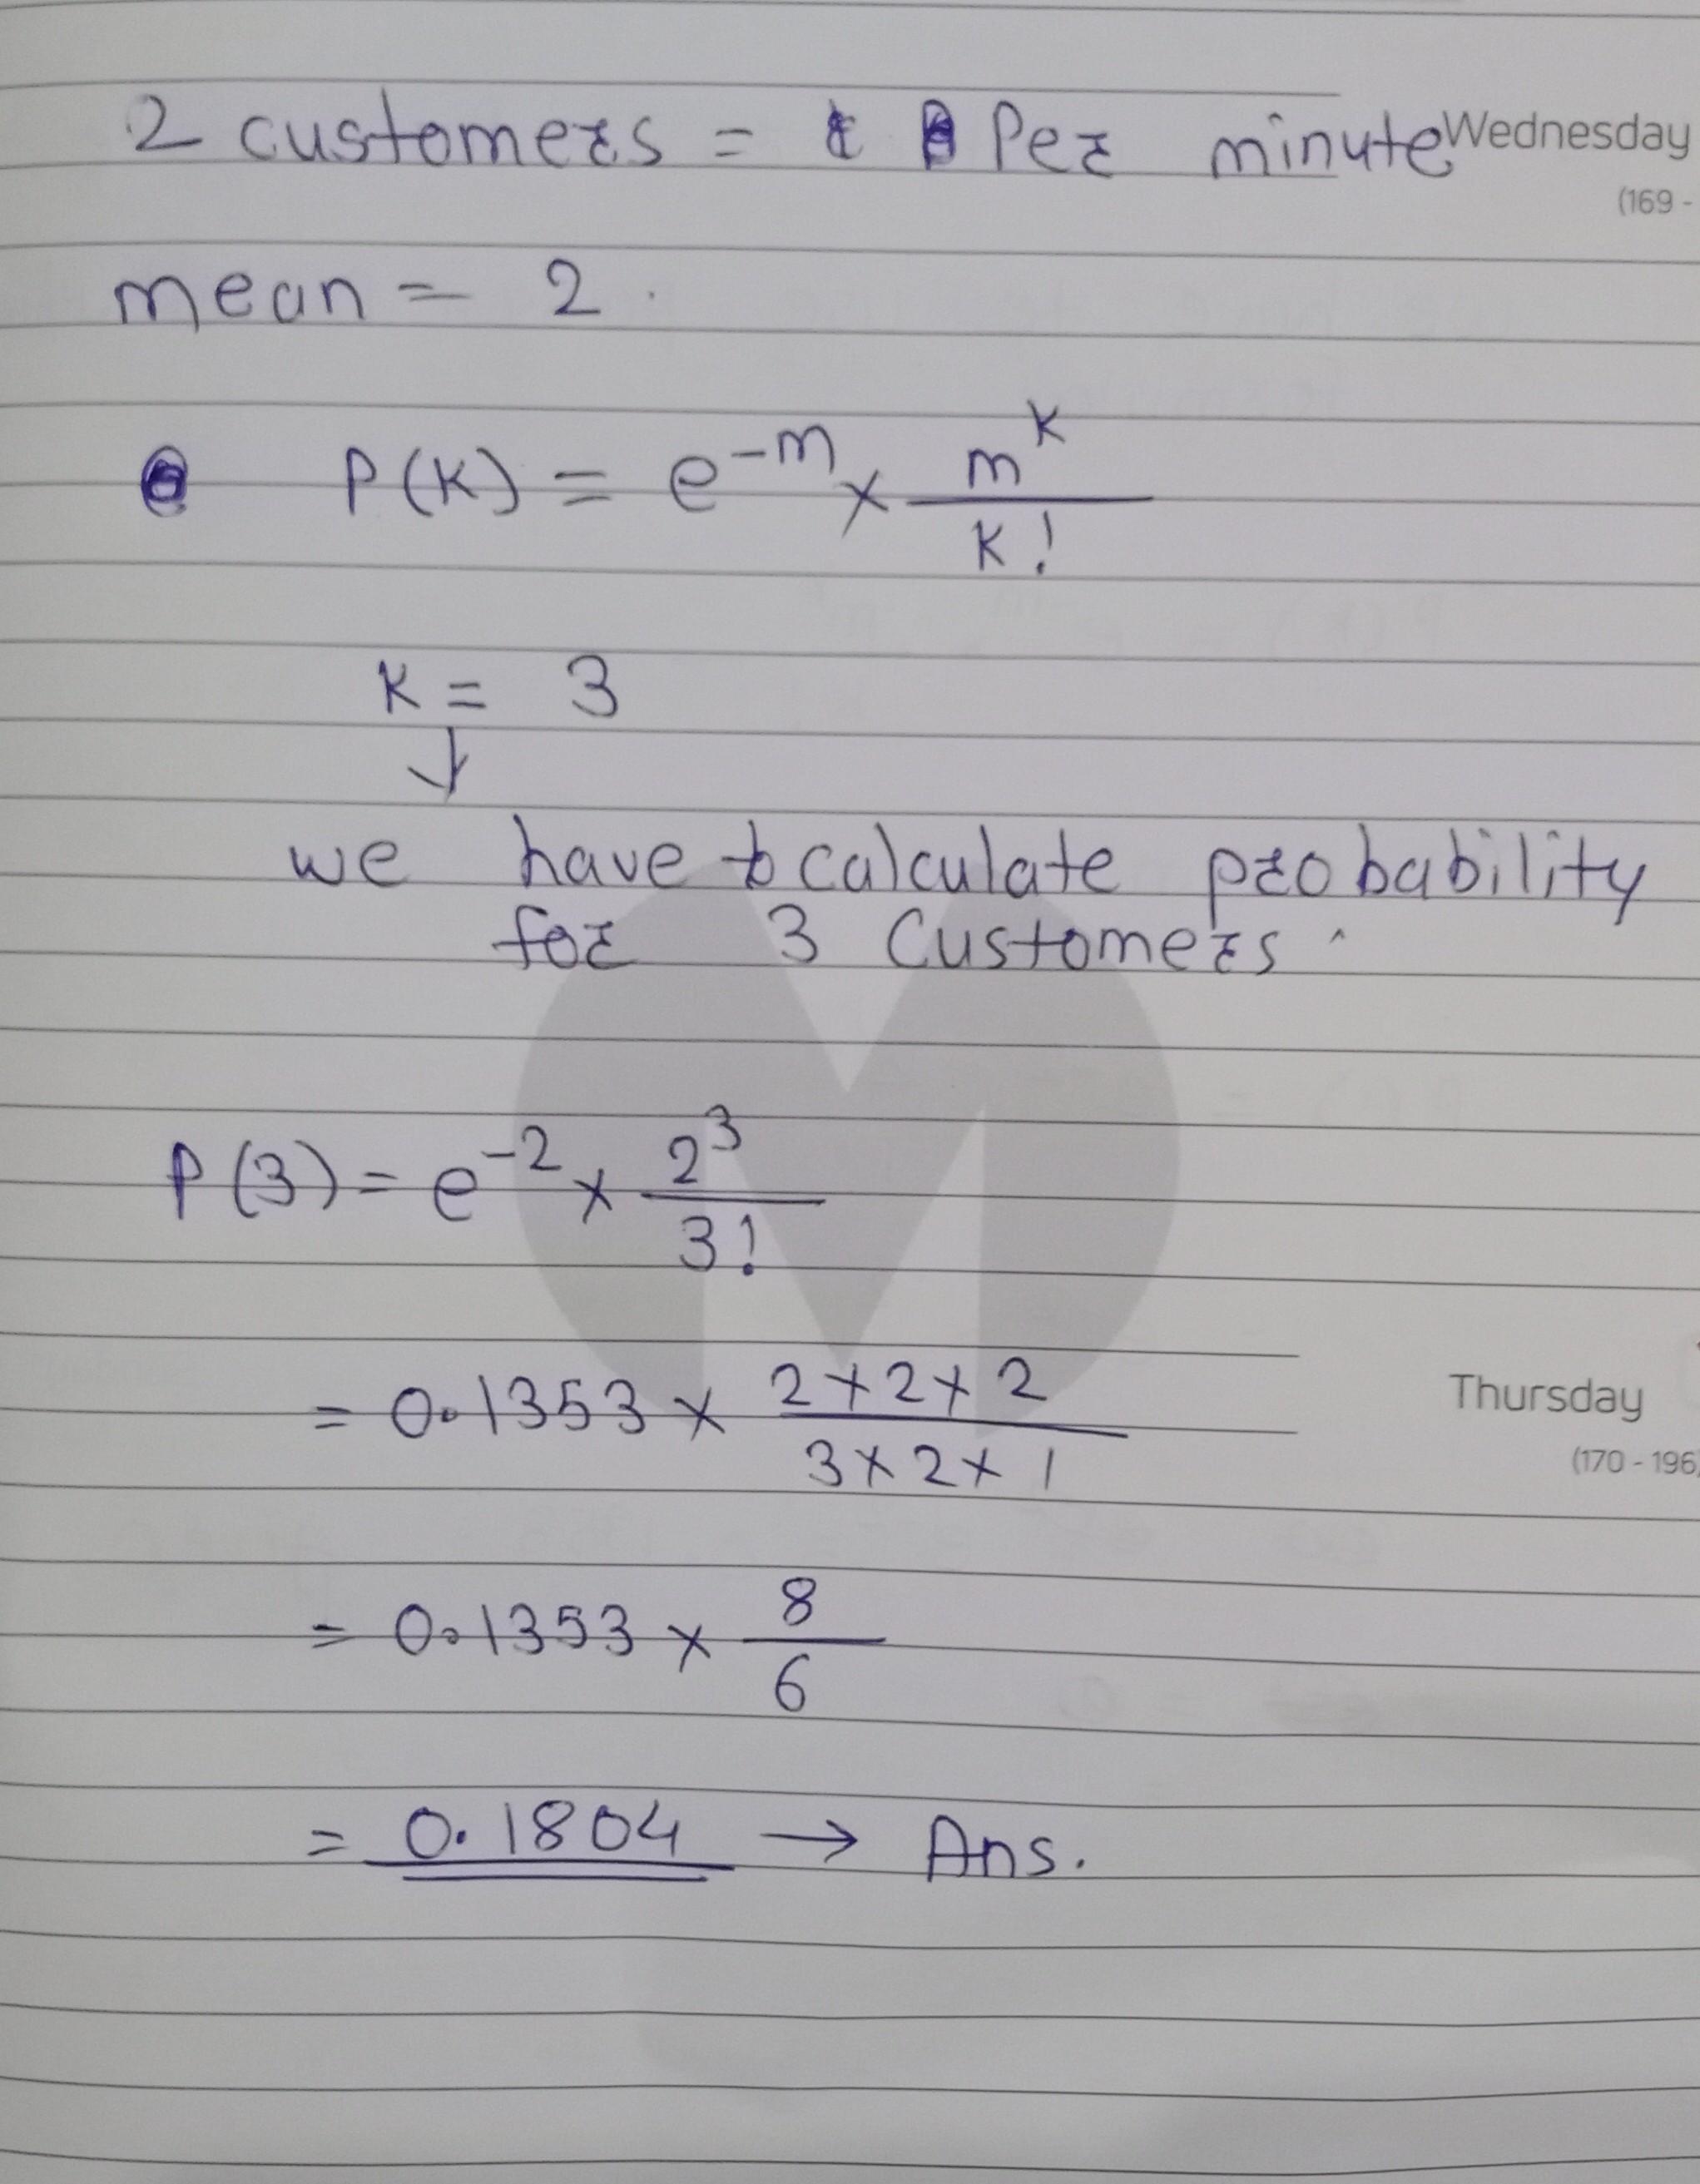 2 customers = Per minute
Wednesday
(169 -
mean = 2.
P(K) = e^-m × m^K / K!
K = 3
↓
we have to calculate probability
for 3 Customers.
P(3) = e^-2 × 2^3 / 3!
= 0.1353 × 2×2×2 / 3×2×1
Thursday
(170 - 196)
= 0.1353 × 8 / 6
= 0.1804 → Ans.